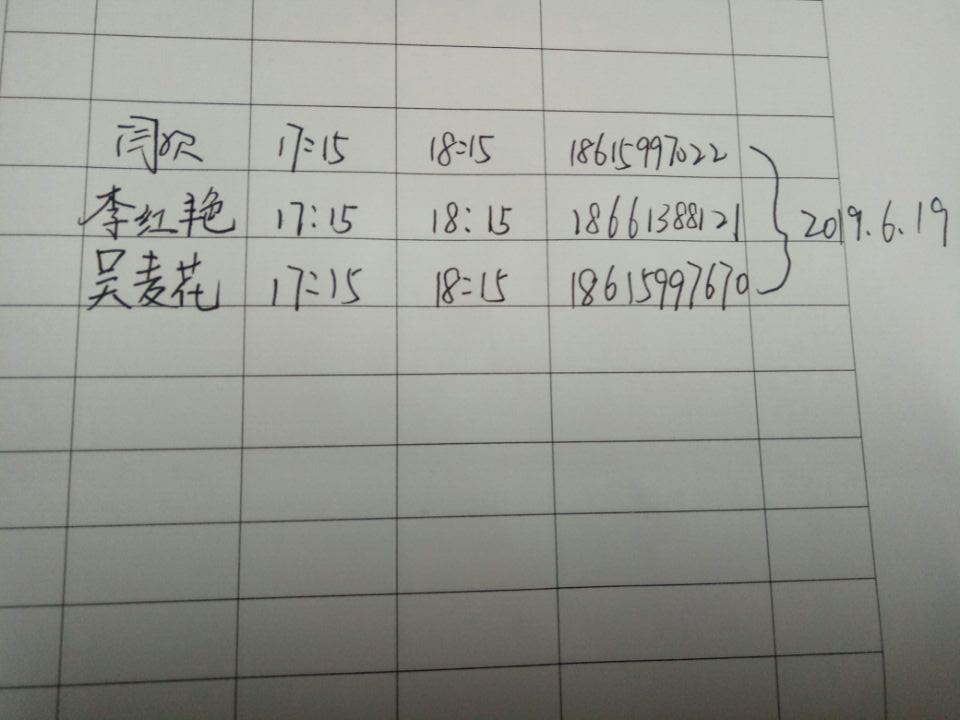 闫欣 17:15 18:15 18615997022
李红艳 17:15 18:15 18661388121 2019.6.19
吴麦花 17:15 18:15 18615997670